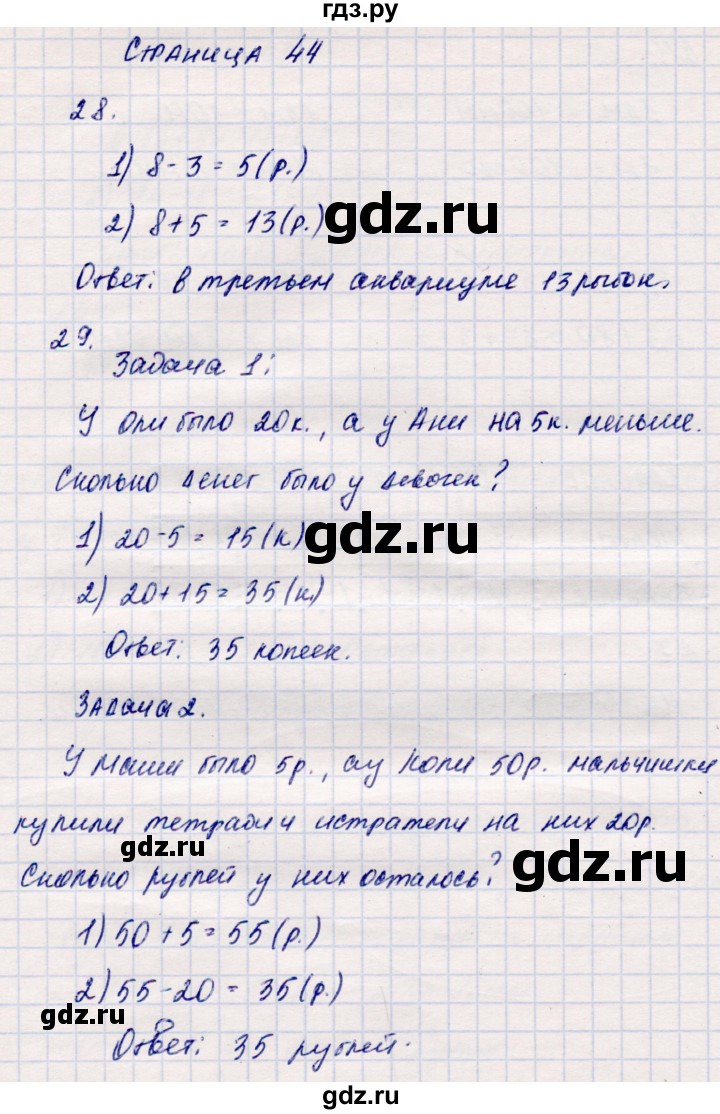 гдз.ру
Страница 44
28.
1) 8 - 3 = 5 (р.)
2) 8 + 5 = 13 (р.)
gdz.ru
Ответ: в третьем аквариуме 13 рыбок.
29.
Задача 1:
У Оли было 20 к., а у Ани на 5 к. меньше.
Сколько денег было у девочек?
1) 20 - 5 = 15 (к)
gdz.ru
2) 20 + 15 = 35 (к)
Ответ: 35 копеек.
Задача 2.
У Маши было 5 р., а у Коли 50 р. мальчишки
купили тетради и истратели на них 20 р.
gdz.ru
Сколько рублей у них осталось?
gdz.ru
1) 50 + 5 = 55 (р.)
2) 55 - 20 = 35 (р.)
gdz.ru
Ответ: 35 рублей.
gdz.ru